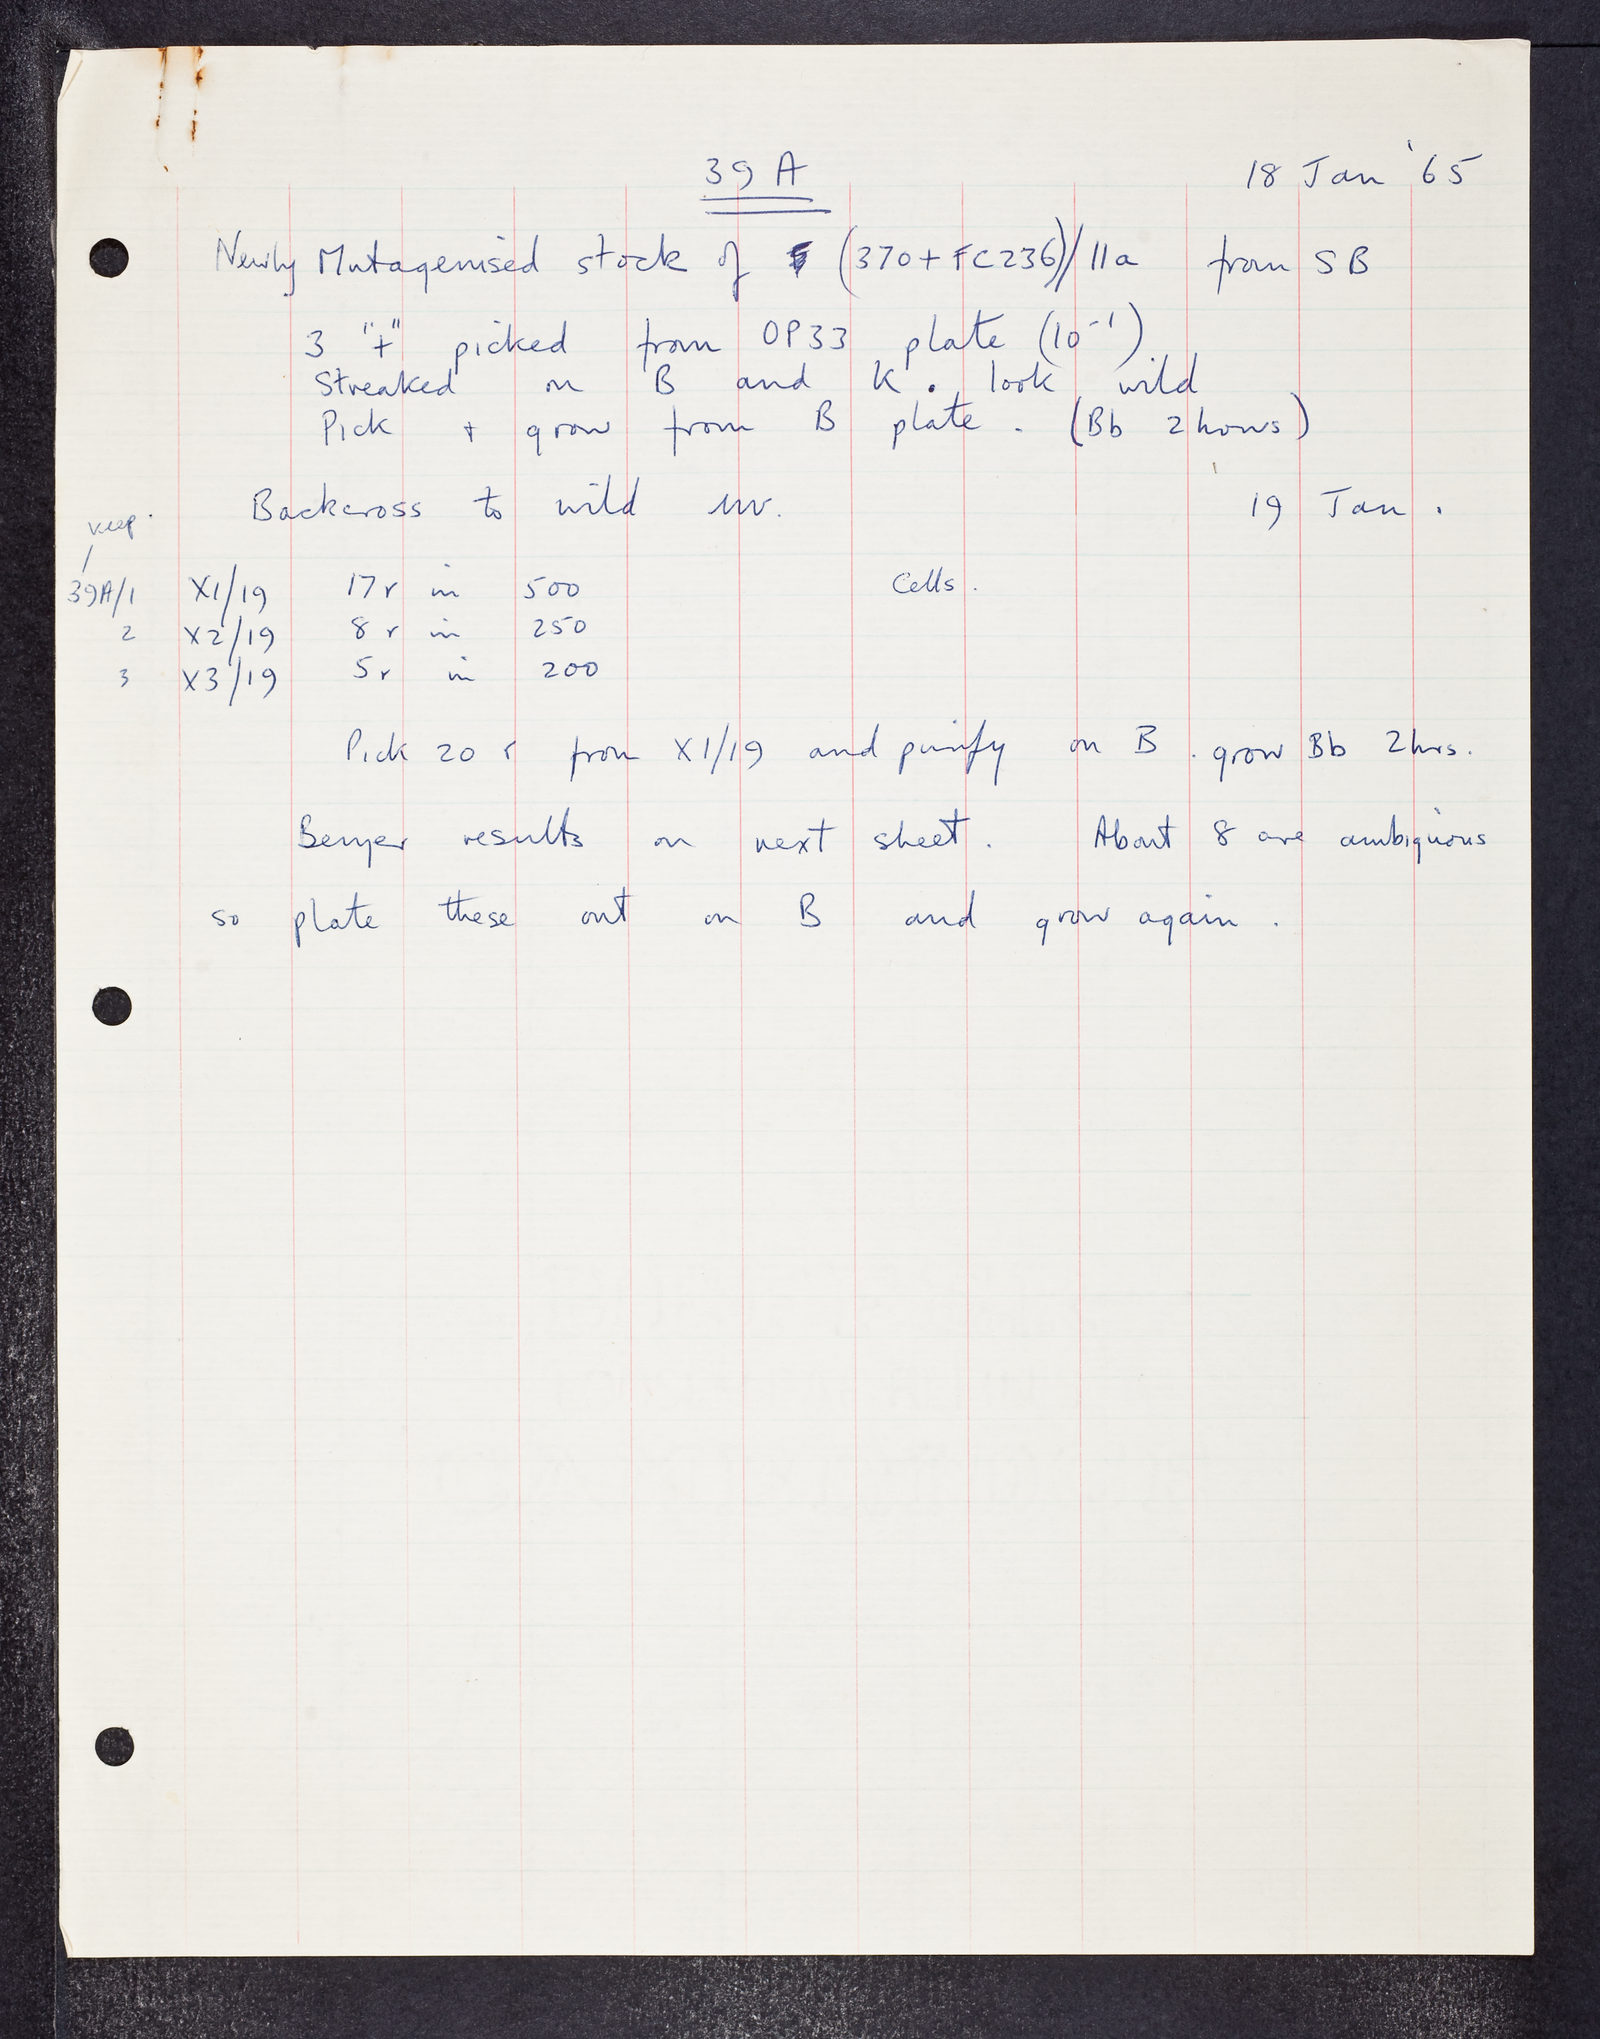 39 A
18 Jan '65
Newly Mutagenised stock of (370+FC236)/11a from SB
3 "+" picked from OP33 plate (10⁻¹)
Streaked on B and K. look wild
Pick + grow from B plate. (Bb 2 hours)
Backcross to wild uv. 19 Jan.
keep
39A/1 X1/19 17r in 500 Cells.
2 X2/19 8r in 250
3 X3/19 5r in 200
Pick 20 r from X1/19 and purify on B. grow Bb 2hrs.
Benzer results on next sheet. About 8 are ambiguous
so plate these out on B and grow again.